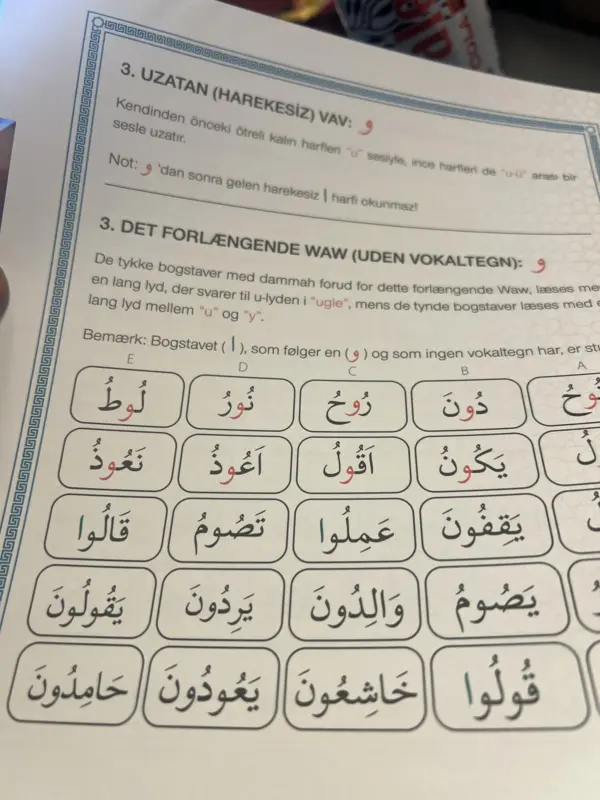 3. UZATAN (HAREKESİZ) VAV: و
Kendinden önceki ötreli kalın harfleri "u" sesiyle, ince harfleri de "u-ü" arası bir
sesle uzatır.
Not: و 'dan sonra gelen harekesiz ا harfi okunmaz!
3. DET FORLÆNGENDE WAW (UDEN VOKALTEGN): و
De tykke bogstaver med dammah forud for dette forlængende Waw, læses
en lang lyd, der svarer til u-lyden i "ugle", mens de tynde bogstaver læses med
lang lyd mellem "u" og "y".
Bemærk: Bogstavet ( ا ), som følger en (و) og som ingen vokaltegn har, er
E D C B A
نُوحُ دُونَ رُوحُ نُورُ لُوطُ
يَكُونُ اَقُولُ اَعُوذُ نَعُوذُ
يَقِفُونَ عَمِلُوا تَصُومُ قَالُوا
يَصُومُ وَالِدُونَ يَرِدُونَ يَقُولُونَ
قُولُوا خَاشِعُونَ يَعُودُونَ حَامِدُونَ